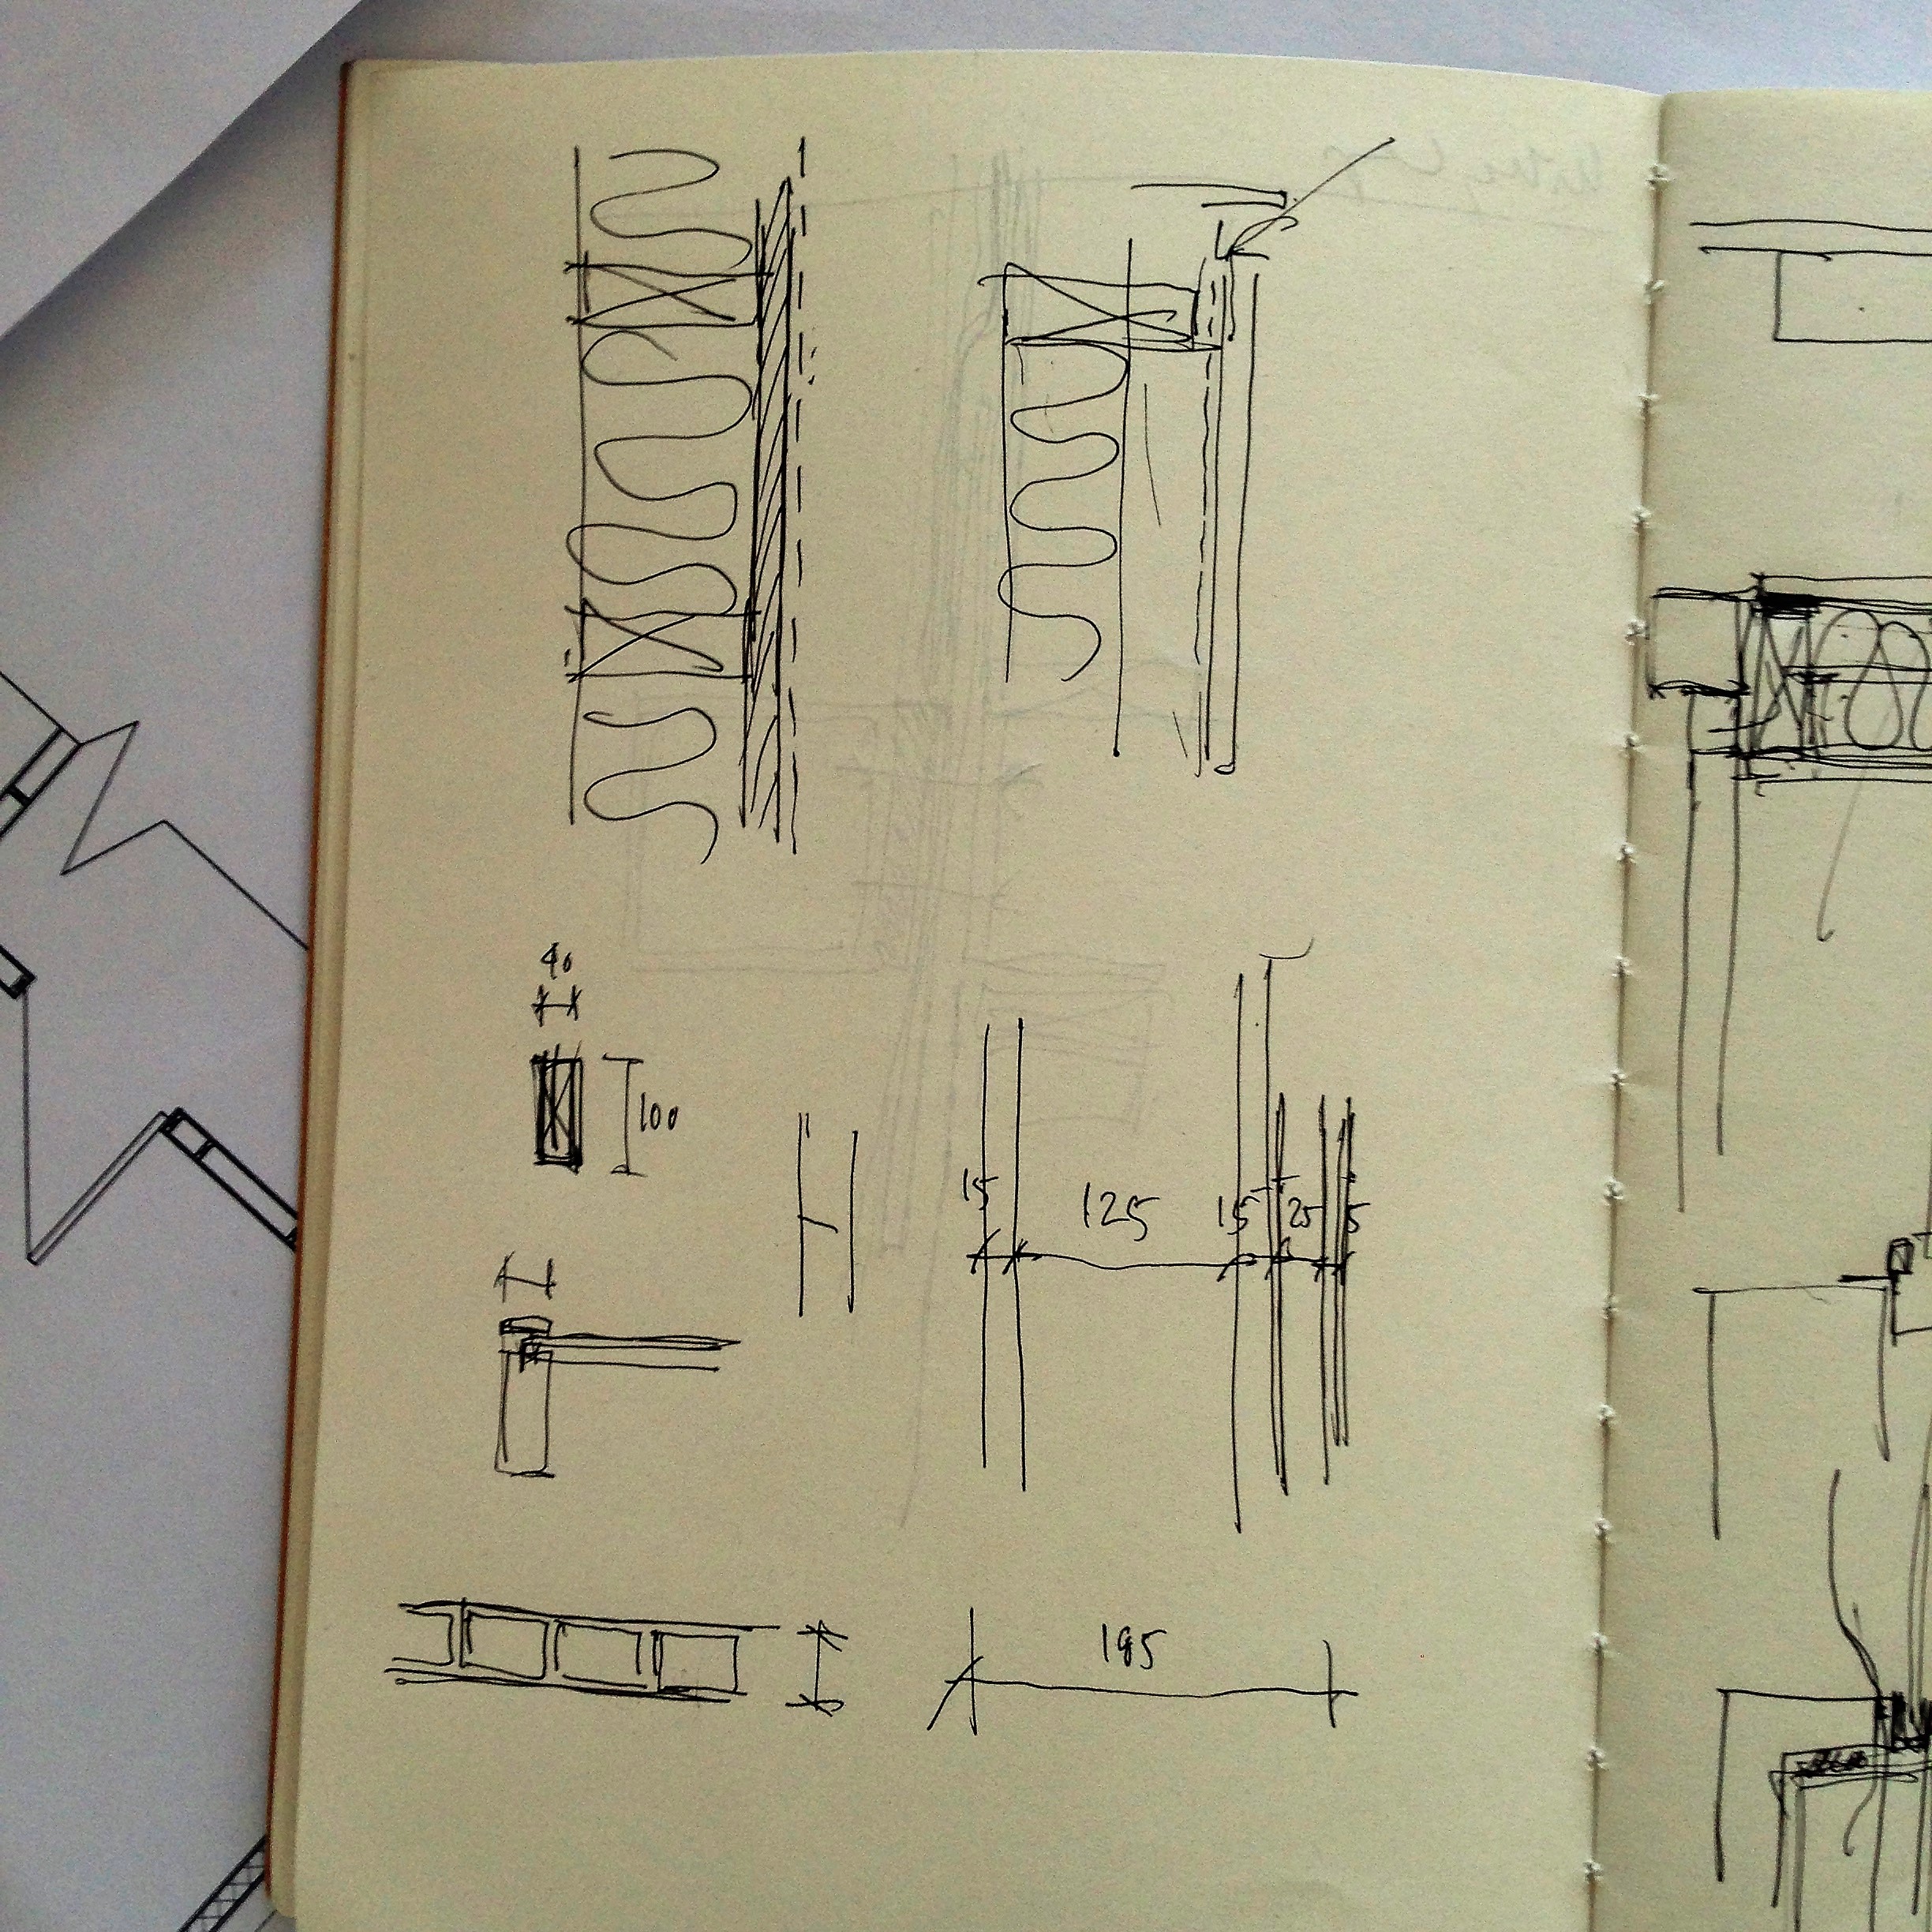 40
100
15 125 15 25 5
185